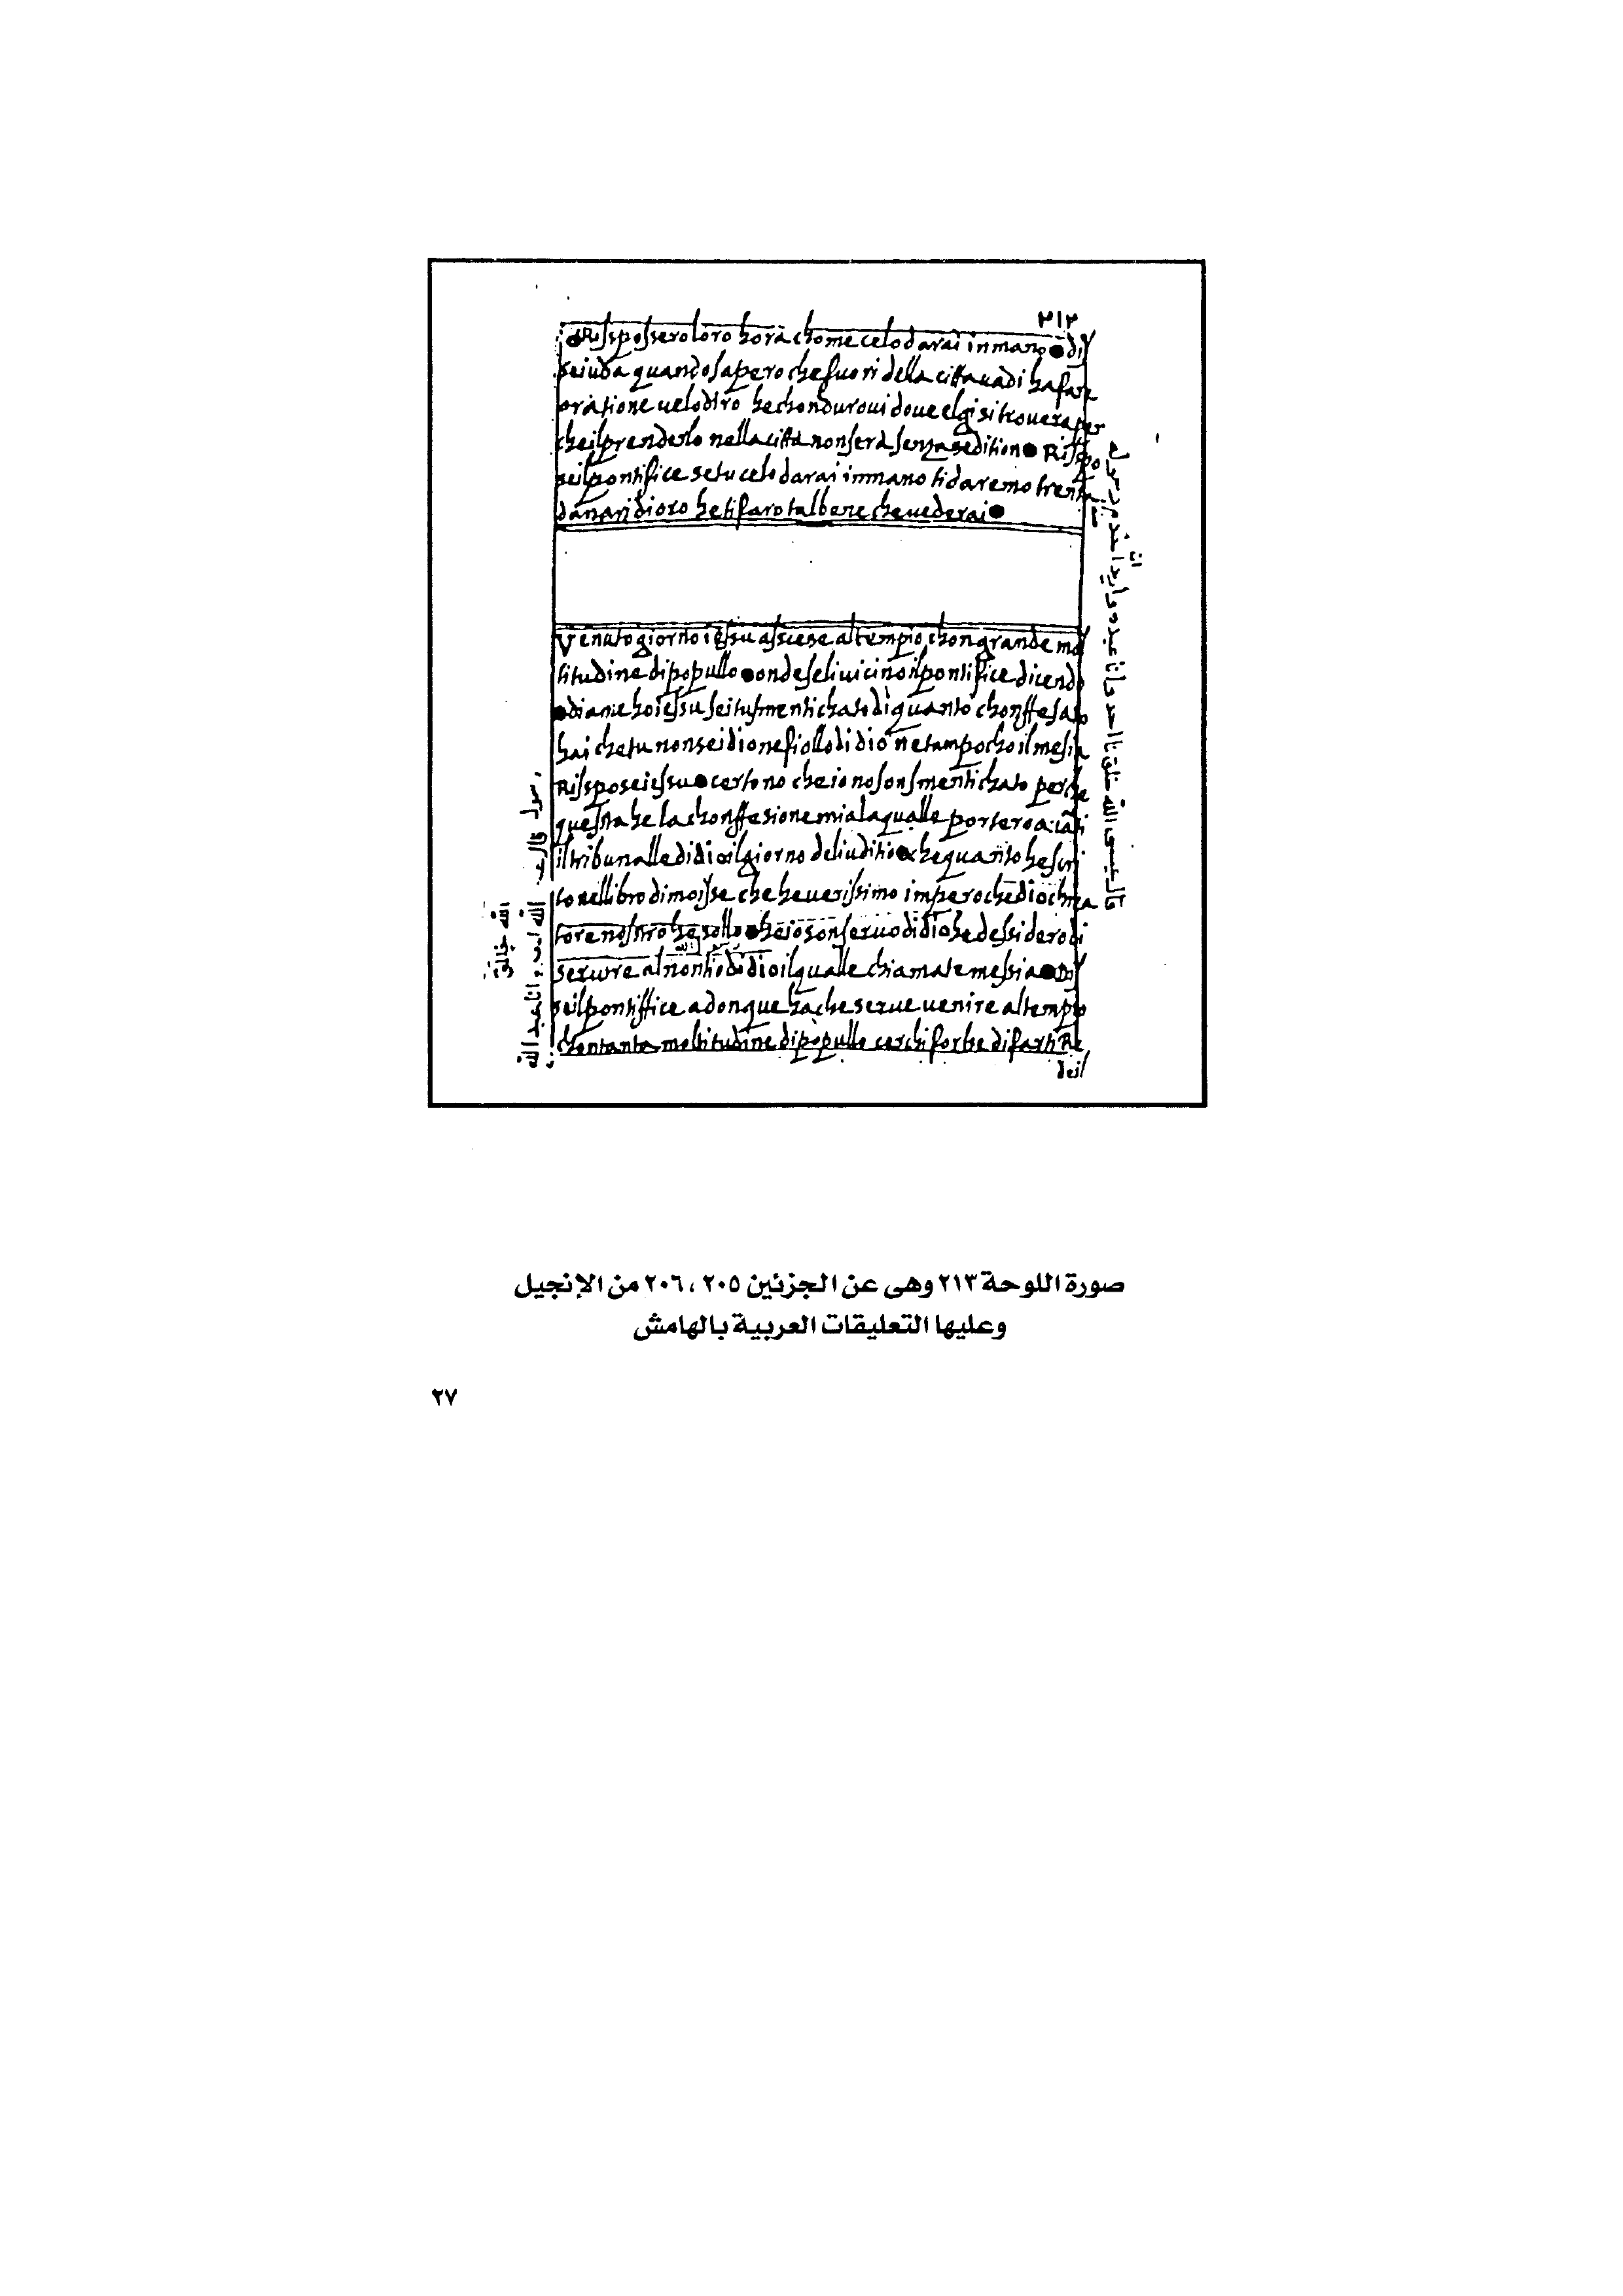 ٢١٣
Risspossero loro hora chome celo darai in mano ● dis
se iuda quando sapero che fuori della citta uadi ha fare
oratione uelo diro he chonduroui doue elgi si trouera per
che il prenderlo nella citta non sera senza sedition ● Risspo
se il pontifice se tu celo darai in mano ti daremo trenta
danari di oro he ti faro tal bene che uederai ●
Venuto giorno iessu asscese al tempio chon grande mol
titudine di popullo ● onde seli uicino il pontifice dicendo
● diame ho iessu sei tu smentichato di quanto chonffesato
hai che tu non sei dio ne fiollo di dio ne tampocho il mesia
Rissposse iessu ● certo no che io no son smentichato perche
questa he la chonffesione mia la qualle portero auanti
il tribunalle di dio il giorno del iuditio ● che quanto he scri
to nel libro di moisse che he uerissimo impero che dio chrea
tore nostro he sollo ● he io son seruo di dio he dessidero di
seruire al nontio di dio il qualle chiamate messia ● Dis
se il pontiffice adonque ha che serue uenire al tempio
chon tanta moltitudine di popullo cerchi forse di farti Re
de il
قال عيسى الله خلقنا احد وانا عبده واريد اخدم رسوله
رسول
الله احد وانا عبد الله
الله خالق
صورة اللوحة ٢١٣ وهى عن الجزئين ٢٠٥ ، ٢٠٦ من الإنجيل
وعليها التعليقات العربية بالهامش
٢٧